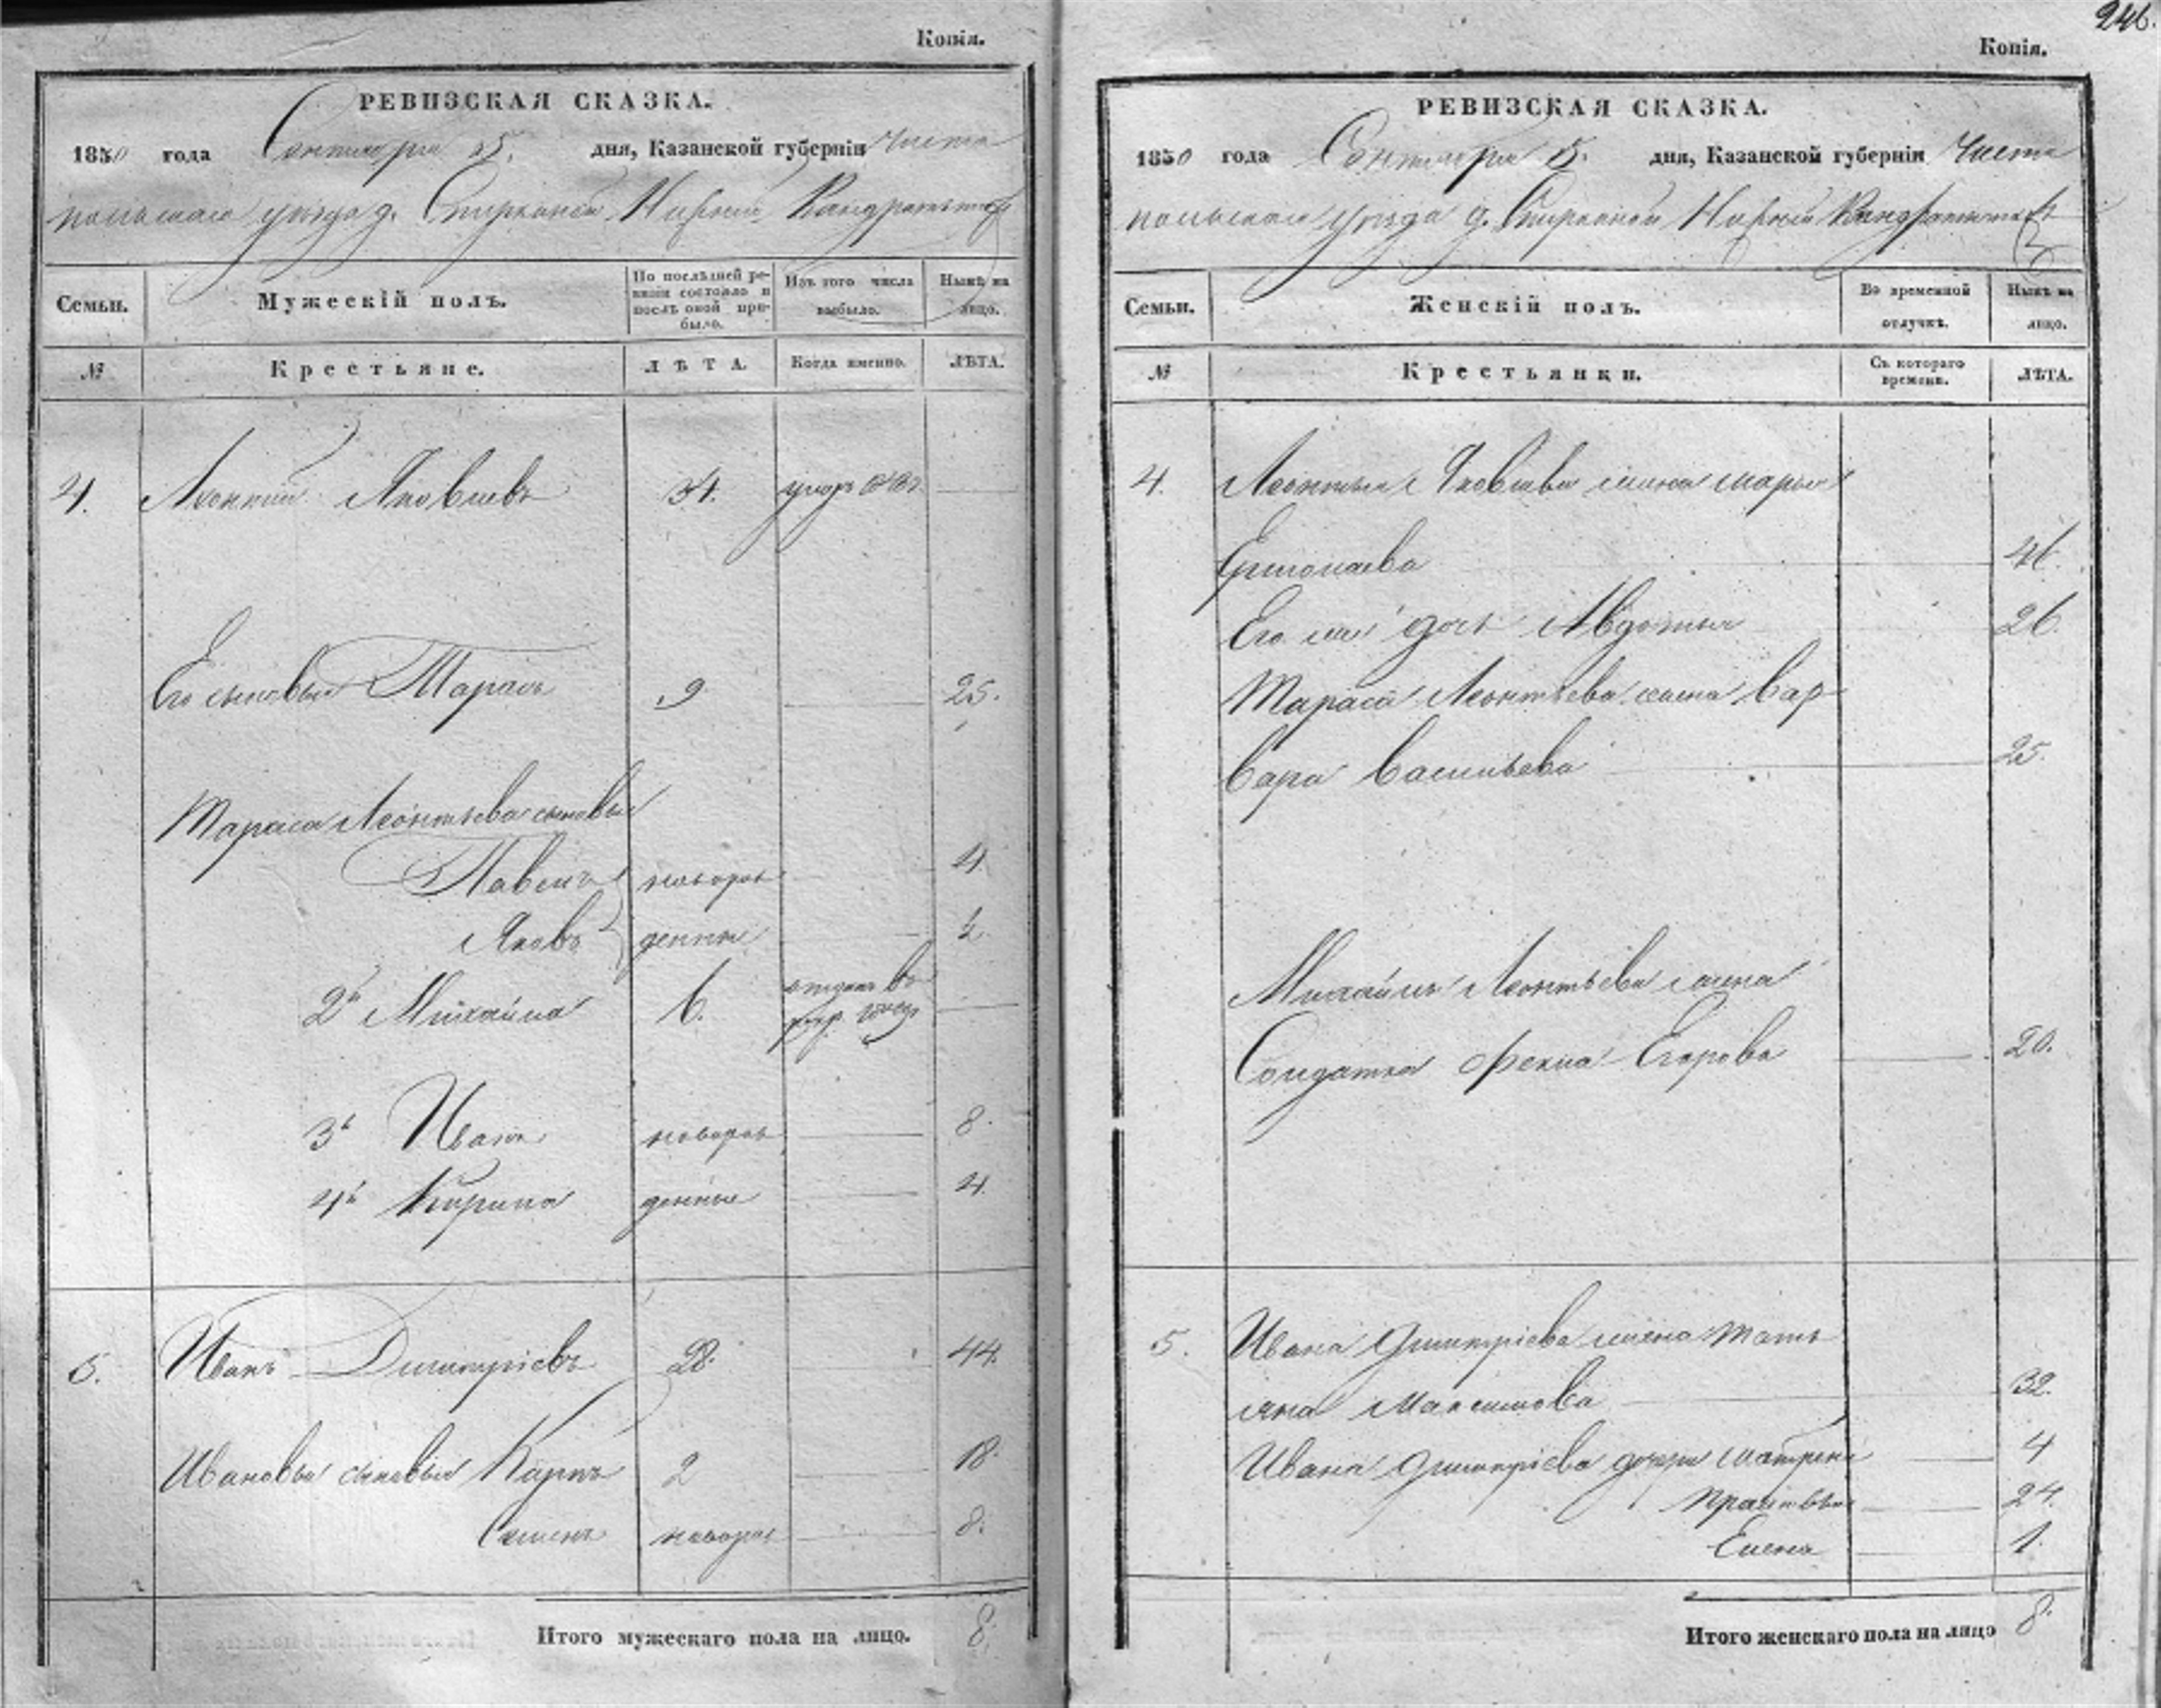 Копія.
РЕВИЗСКАЯ СКАЗКА.
1850 года Сентября 25. дня, Казанской губерніи Чисто
польскаго уѣзда д.
Семьи.
Мужескій полъ.
По послѣдней ре-
визіи состояло и
послѣ оной при-
было.
Изъ того числа
выбыло.
Нынѣ на
лицо.
№
Крестьяне.
ЛѢТА.
Когда именно.
ЛѢТА.
4. Леонтий Яковлевъ 34.
Его сыновья Тарасъ 9 25.
Тараса Леонтьева сыновья
Павелъ новорож 4.
Яковъ денные
2й Михайла 6. отданъ въ
рекр.
3й Иванъ новорож 8.
4й Кирила денные 4.
5. Иванъ Дмитріевъ 28. 44.
Ивановы сыновья Карпъ 2 18.
Семенъ новорож 8.
Итого мужескаго пола на лицо. 8.
246.
Копія.
РЕВИЗСКАЯ СКАЗКА.
1850 года Сентября дня, Казанской губерніи Чисто
польскаго уѣзда д.
Семьи.
Женскій полъ.
Во временной
отлучкѣ.
Нынѣ на
лицо.
№
Крестьянки.
Съ котораго
времени.
ЛѢТА.
4. Леонтья Яковлева жена Марья
Ермолаева 46.
Его же дочь Авдотья 26.
Тараса Леонтьева жена Вар
вара Васильева 25.
Михайлы Леонтьева жена
Солдатка Фекла Егорова 20.
5. Ивана Дмитріева жена Тать
яна Максимова 32.
Ивана Дмитріева дочери Матрена 4
24.
Елена 1.
Итого женскаго пола на лицо 8.